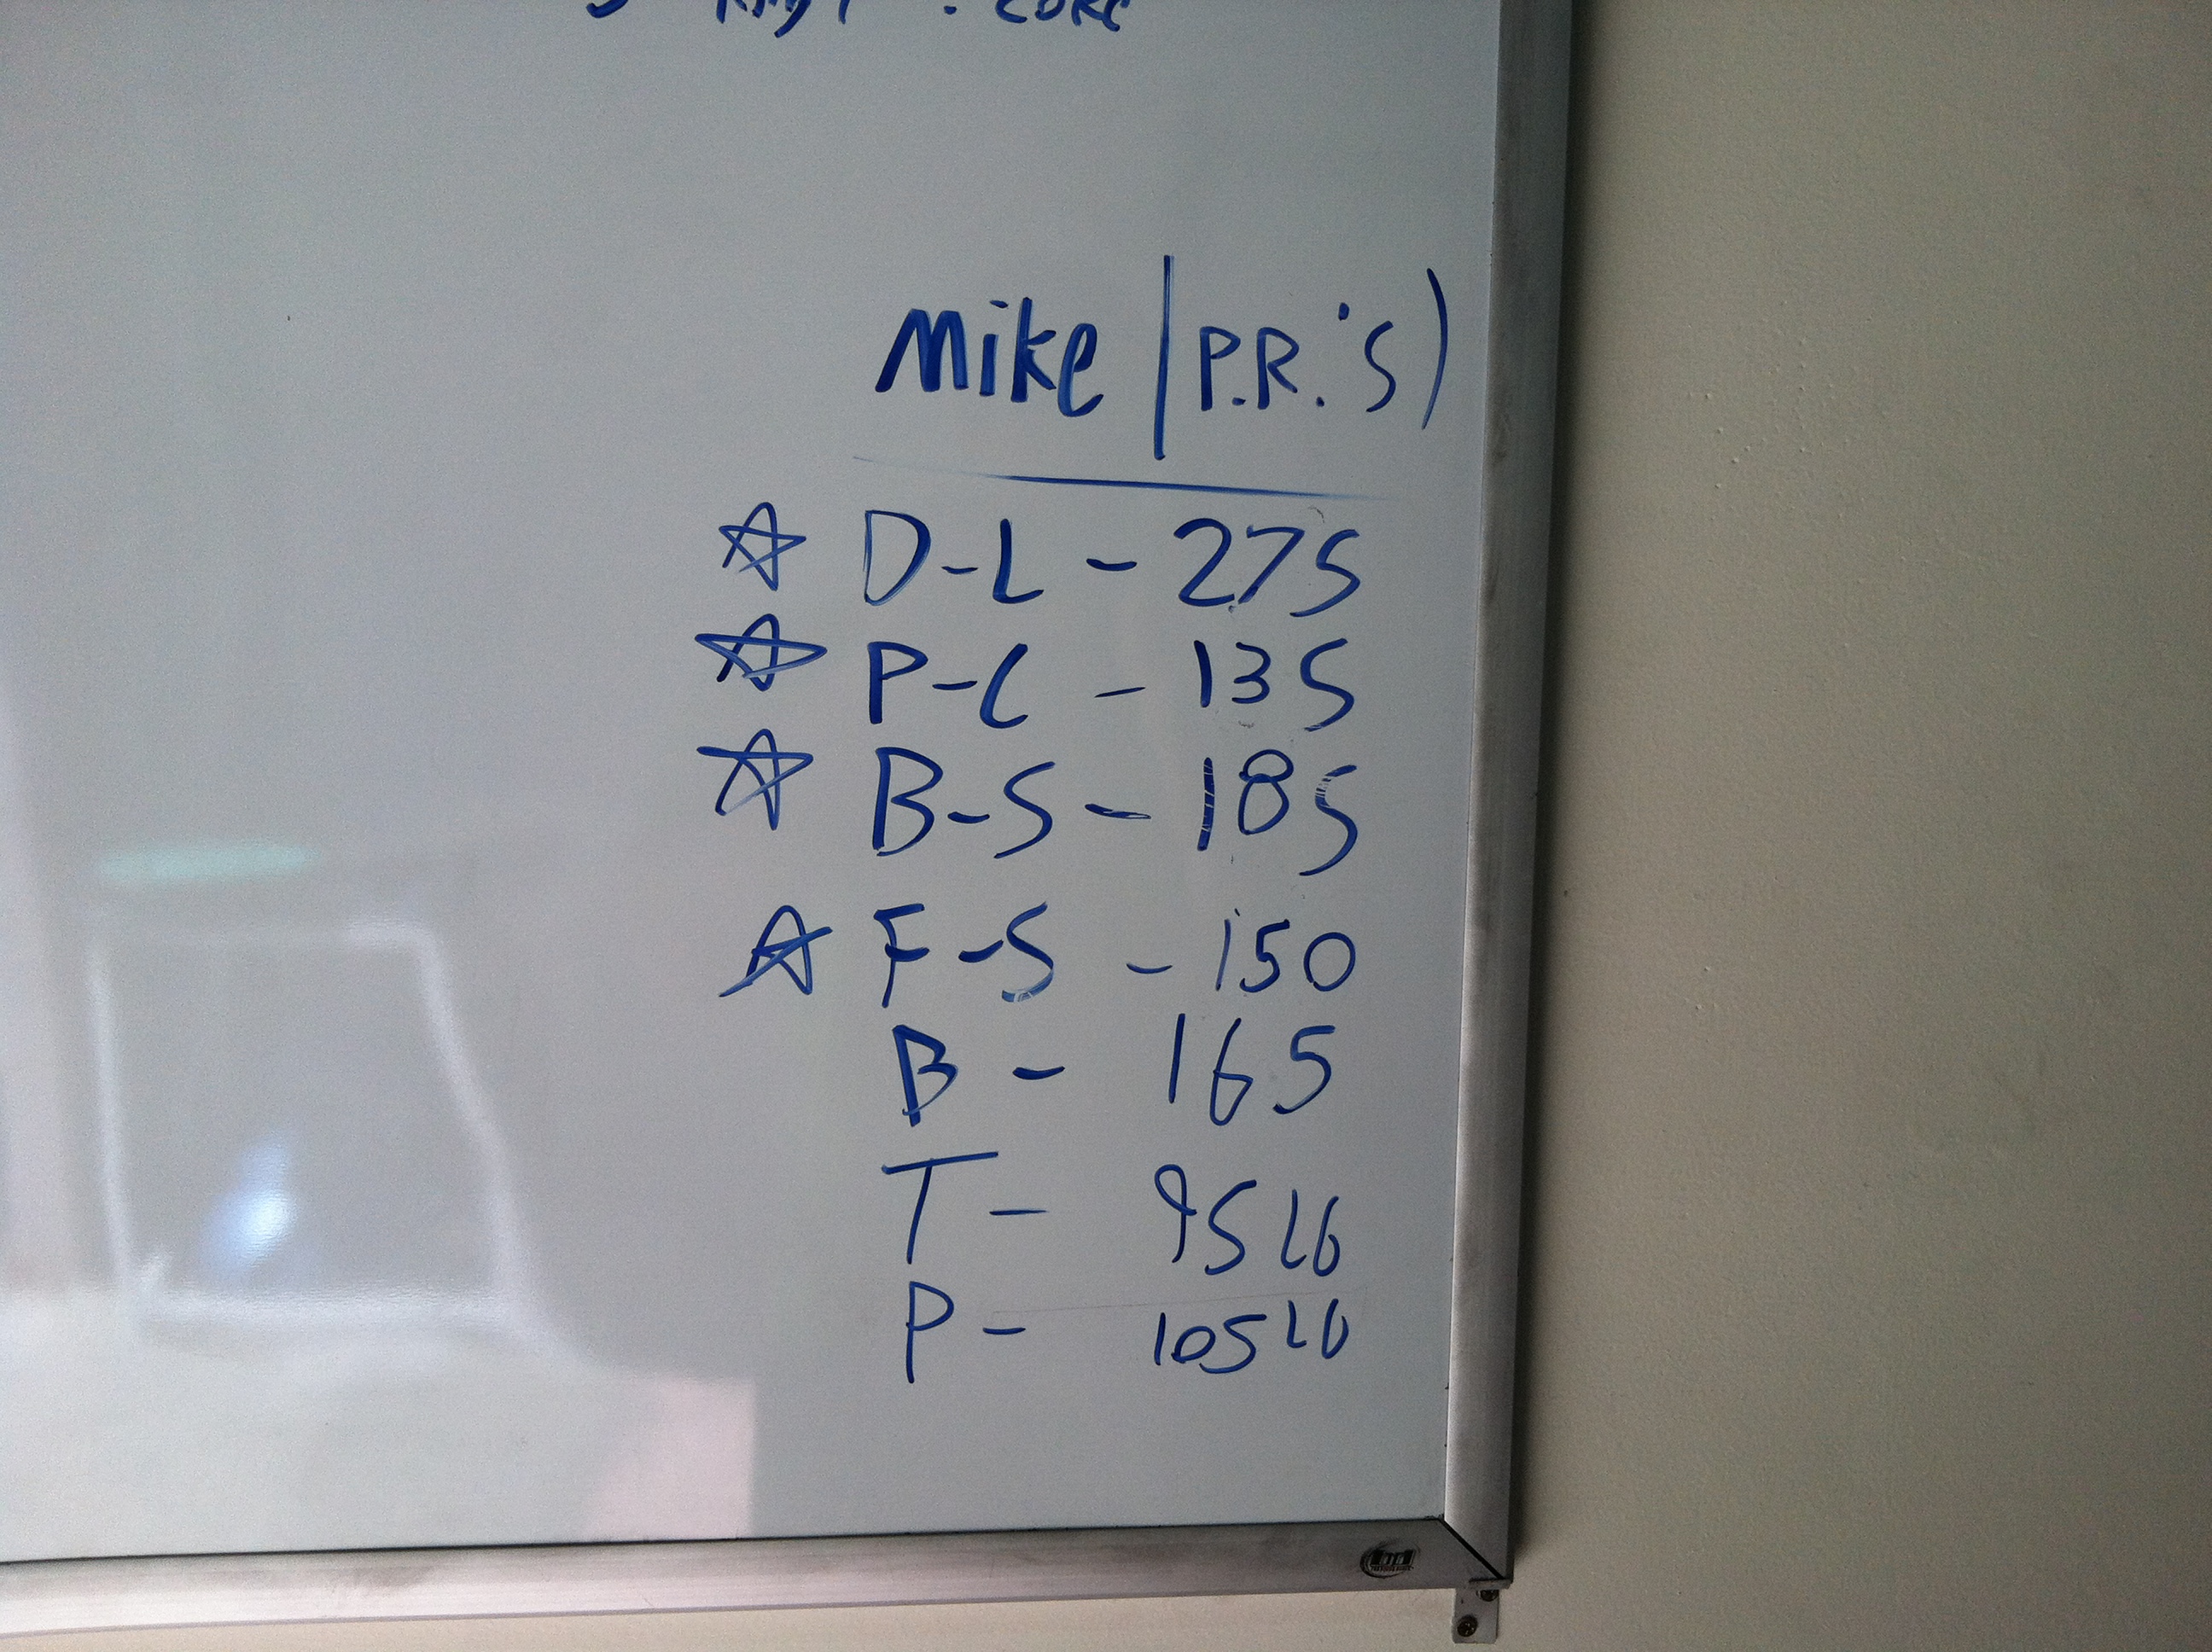 Mike (P.R.'S)
☆ D-L - 275
☆ P-C - 135
☆ B-S - 185
☆ F-S - 150
B - 165
T - 95 lb
P - 105 lb